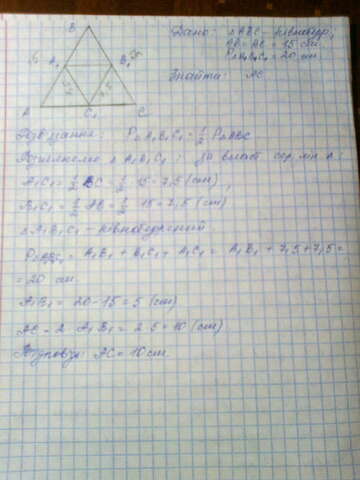 B
Дано: △ABC - рівнобедр.,
AB = BC = 15 см
P△A₁B₁C₁ = 20 см
Знайти: AC
A₁ B₁
A C₁ C
Розв'язання: P△A₁B₁C₁ = 1/2 P△ABC
Розглянемо △A₁B₁C₁:
A₁C₁ = 1/2 BC = 1/2 · 15 = 7,5 (см),
B₁C₁ = 1/2 AB = 1/2 · 15 = 7,5 (см)
△A₁B₁C₁ - рівнобедрений
= A₁B₁ + B₁C₁ + A₁C₁ = A₁B₁ + 7,5 + 7,5 =
= 20 см.
A₁B₁ = 20 - 15 = 5 (см)
AC = 2 · A₁B₁ = 2 · 5 = 10 (см)
AC = 10 см.